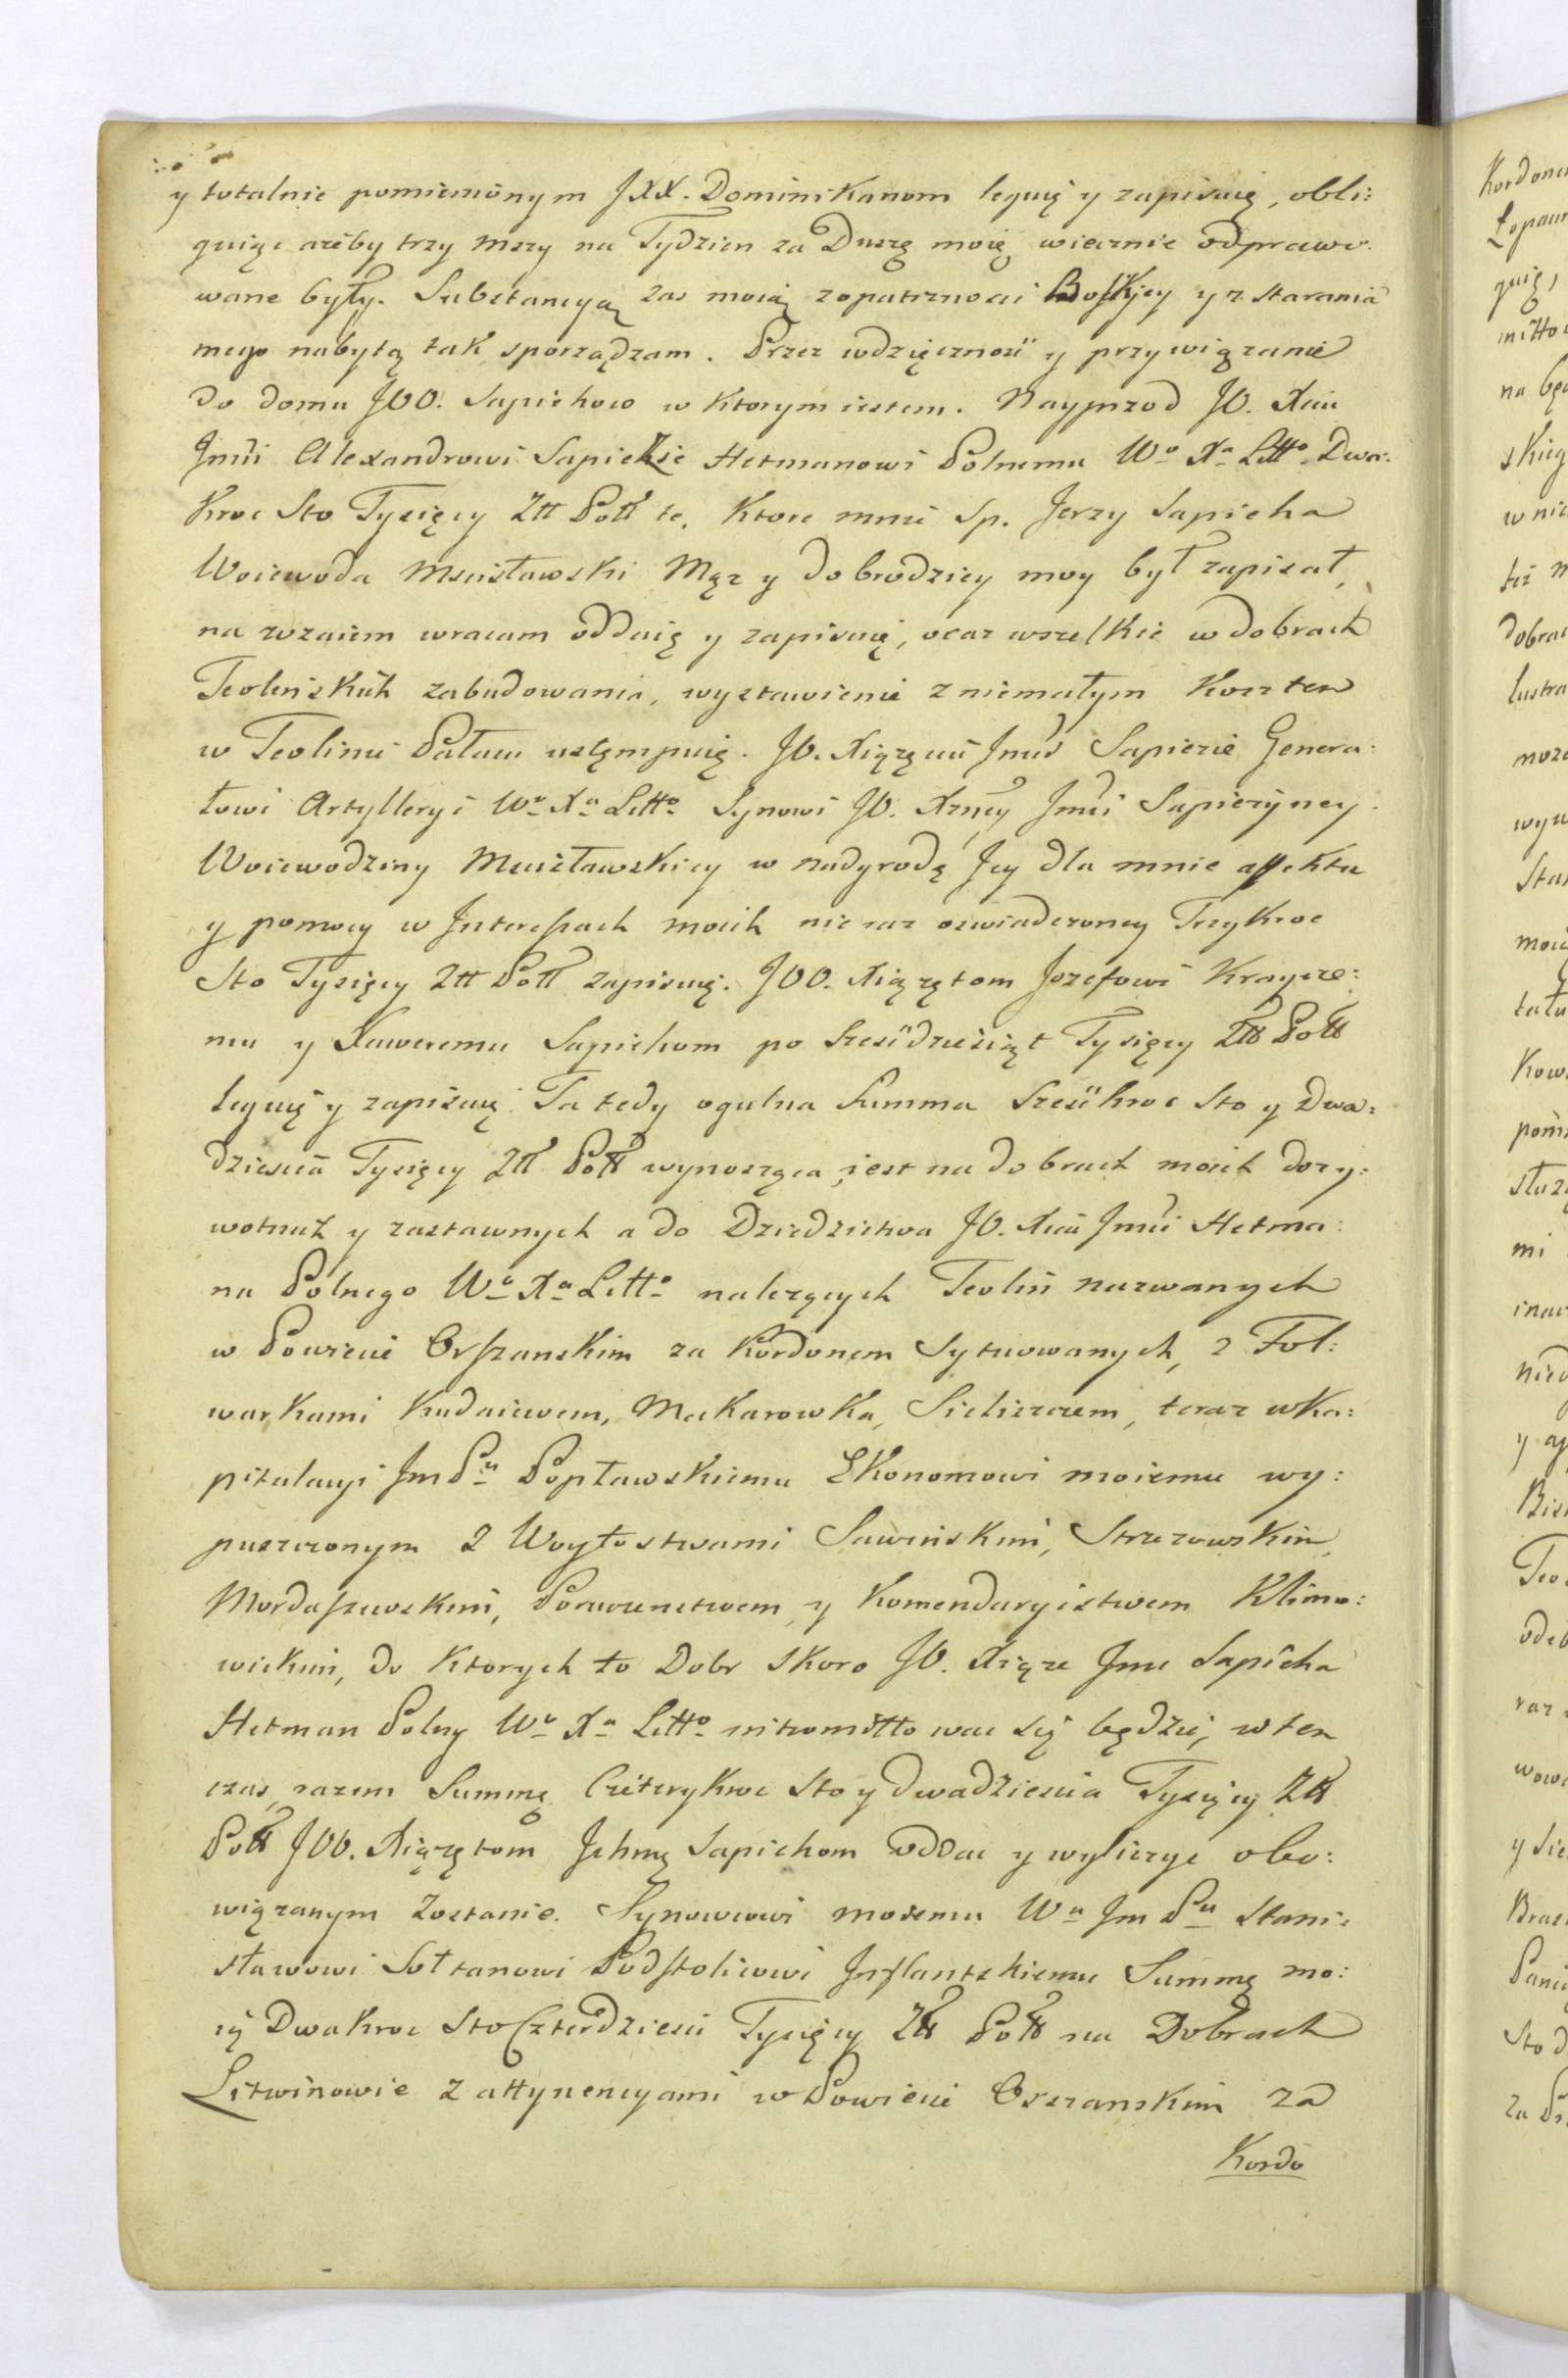 y totalnie pomienionym JXX. Dominikanom leguię y zapisuię, obli:
guiąc ażeby trzy mszy na Tydzien za Duszę moię wiecznie odprawo:
wane były. Substancyą zas moią z opatrznosci Boskiey y z starania
mego nabytą tak sporządzam. Przez wdzięcznosć y przywiązanie
do domu JOO. Sapiehow w ktorym iestem. Nayprzod JO. Xciu
Jmći Alexandrowi Sapieże Hetmanowi Polnemu Wo Xa Litto Dwa:
kroc Sto Tysięcy Złł Poll te, ktore mnie Sp. Jerzy Sapieha
Woiewoda Mscisławski Mąz y dobrodziey moy był zapisał,
na wzaiem wracam oddaię y zapisuię, oraz wszelkie w dobrach
Teolinskich zabudowania, wystawienie z niemałym Kosztem
w Teolinie Pałacu ustępuię. JO. Xiążęciu Jmći Sapiezie Genera:
łowi Artylleryi Wo Xa Litto Synowi JO. Xzney Jmći Sapieżyney
Woiewodziny Mscisławskiey w nadgrodę Jey dla mnie affektu
y pomocy w Interessach moich nie raz oswiadczoney Trzykroc
Sto Tysięcy Złł Poll zapisuię. JOO. Xiążętom Jozefowi Kraycze:
mu y Xaweremu Sapiehom po Szesćdziesiąt Tysięcy Złł Poll
leguię y zapisuię. Ta tedy ogulna Summa Szesćkroc Sto y Dwa:
dziescia Tysięcy Złł Poll wynosząca iest na dobrach moich dozy:
wotnich y zastawnych a do Dziedzictwa JO. Xcia Jmći Hetma:
na Polnego Wo Xa Litto nalezących Teolin nazwanych
w Powiecie Orszanskim za Kordonem Sytuowanych, z Fol:
warkami Kudaiewem, Makarowka, Sieliszczem, teraz w Ka:
pitulacyi Jm Pu Popławskiemu Ekonomowi moiemu wy:
puszczonym z Woytostwami Sawinskim, Strzezowskim,
Mordaszewskim, Porucznctwem y Komendaryistwem Klimo:
wickim, do ktorych to Dobr skoro JO. Xiąze Jmc Sapieha
Hetman Polny Wo Xa Litto intromitto wac się będzie, w ten
czas razem Summę Czterykroc Sto y dwadziescia Tysięcy Złł
Poll JOO. Xiążętom Jchmę Sapiehom oddac y wyliczyc obo:
wiązanym zostanie. Synowcowi moiemu Wu Jm Pu Stani:
sławowi Sołtanowi Podstolicowi Inflantskiemu Summę mo:
ię Dwakroc Sto Czterdziesci Tysięcy Złł Poll na Dobrach
Litwinowie z attynencyami w Powiecie Orszanskim za
Kordo